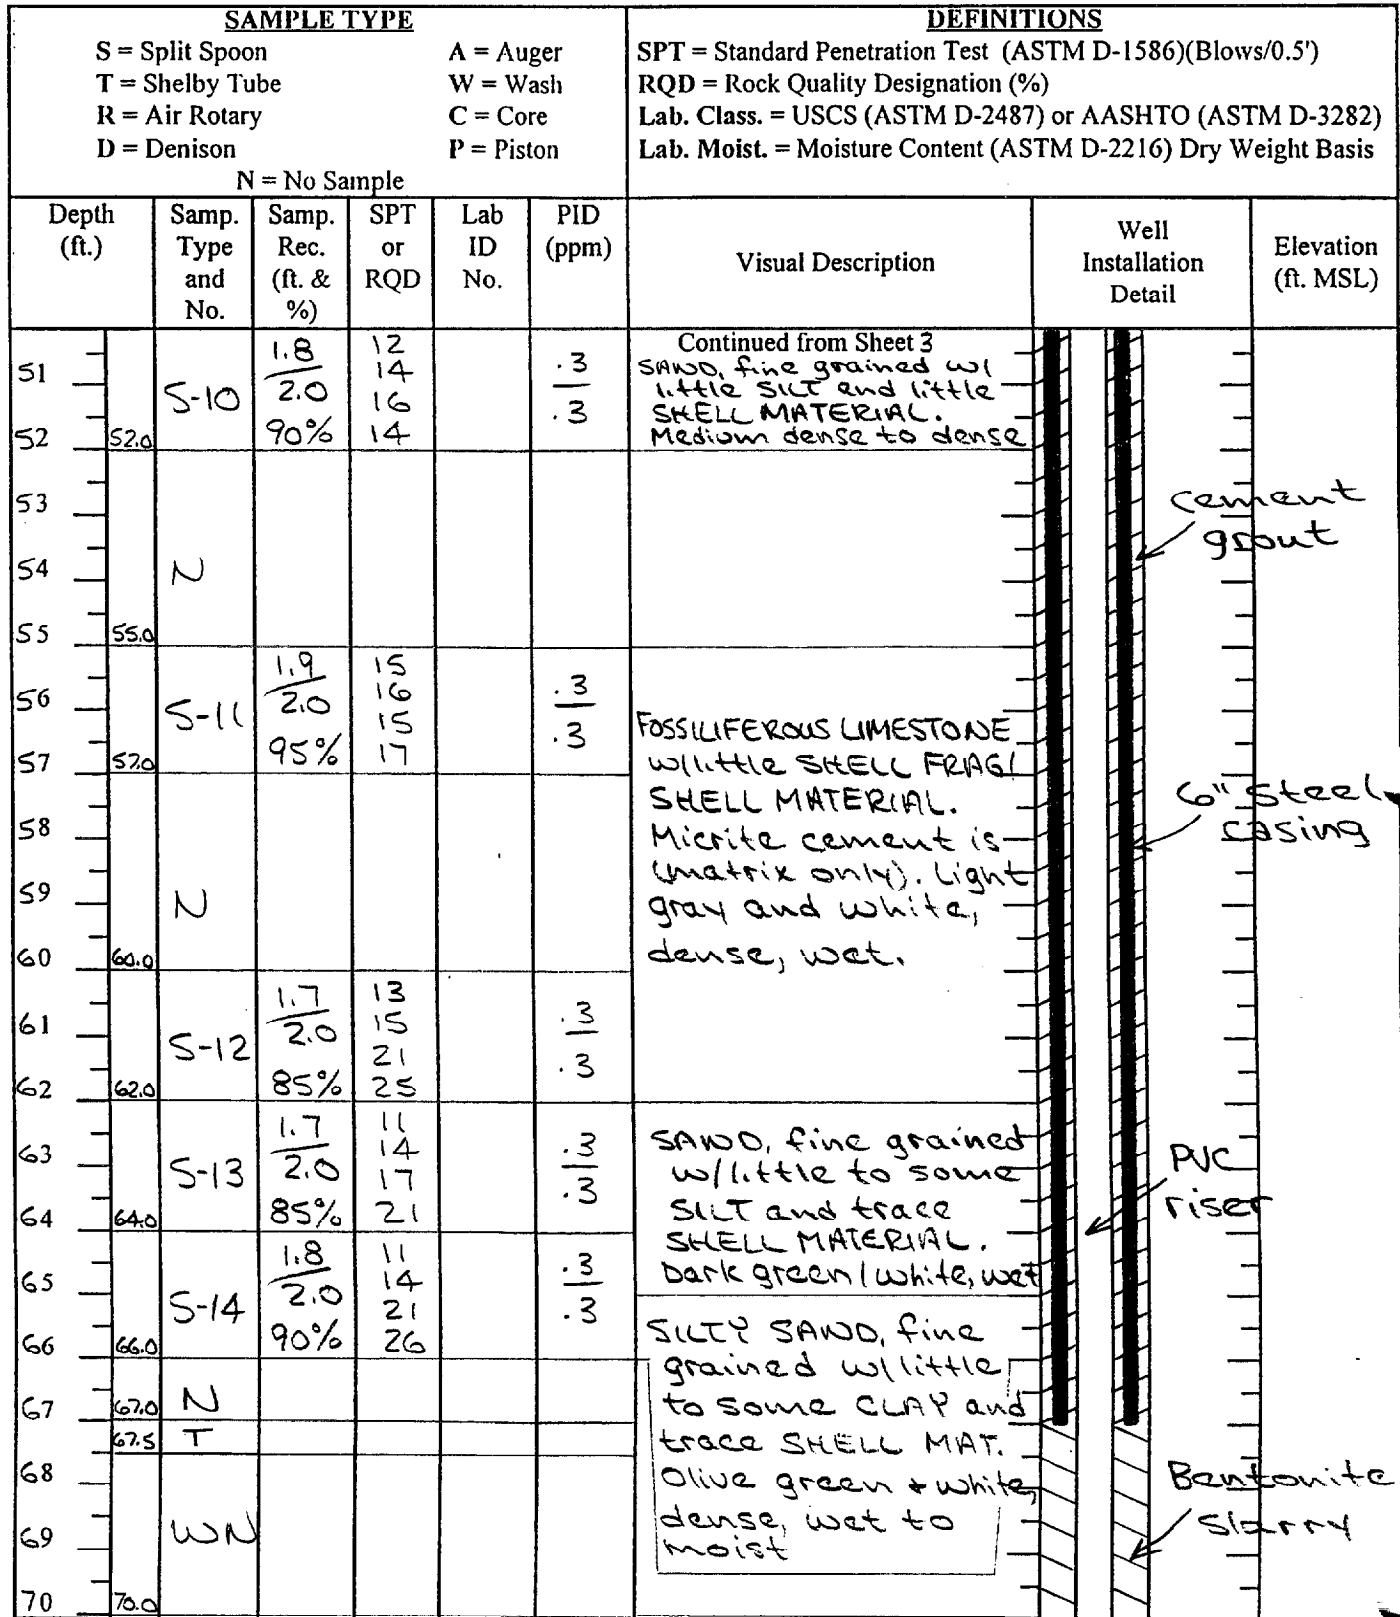 SAMPLE TYPE
S = Split Spoon A = Auger
T = Shelby Tube W = Wash
R = Air Rotary C = Core
D = Denison P = Piston
N = No Sample
DEFINITIONS
SPT = Standard Penetration Test (ASTM D-1586)(Blows/0.5')
RQD = Rock Quality Designation (%)
Lab. Class. = USCS (ASTM D-2487) or AASHTO (ASTM D-3282)
Lab. Moist. = Moisture Content (ASTM D-2216) Dry Weight Basis
Depth
(ft.)
Samp.
Type
and
No.
Samp.
Rec.
(ft. &
%)
SPT
or
RQD
Lab
ID
No.
PID
(ppm)
Visual Description
Well
Installation
Detail
Elevation
(ft. MSL)
51
52
52.0
S-10
1.8
2.0
90%
12
14
16
14
.3
.3
Continued from Sheet 3
SAND, fine grained w/
little SILT and little
SHELL MATERIAL.
Medium dense to dense
53
54
55
55.0
N
cement
grout
56
57
57.0
S-11
1.9
2.0
95%
15
16
15
17
.3
.3
FOSSILIFEROUS LIMESTONE
w/little SHELL FRAG/
SHELL MATERIAL.
Micrite cement is
(matrix only). Light
gray and white,
dense, wet.
6" steel
casing
58
59
60
60.0
N
61
62
62.0
S-12
1.7
2.0
85%
13
15
21
25
.3
.3
63
64
64.0
S-13
1.7
2.0
85%
11
14
17
21
.3
.3
SAND, fine grained
w/little to some
SILT and trace
SHELL MATERIAL.
Dark green/white, wet
PVC
riser
65
66
66.0
S-14
1.8
2.0
90%
11
14
21
26
.3
.3
SILTY SAND, fine
grained w/little
to some CLAY and
trace SHELL MAT.
Olive green + white,
dense, wet to
moist
67
67.0
N
67.5
T
68
69
70
70.0
WN
Bentonite
slarry